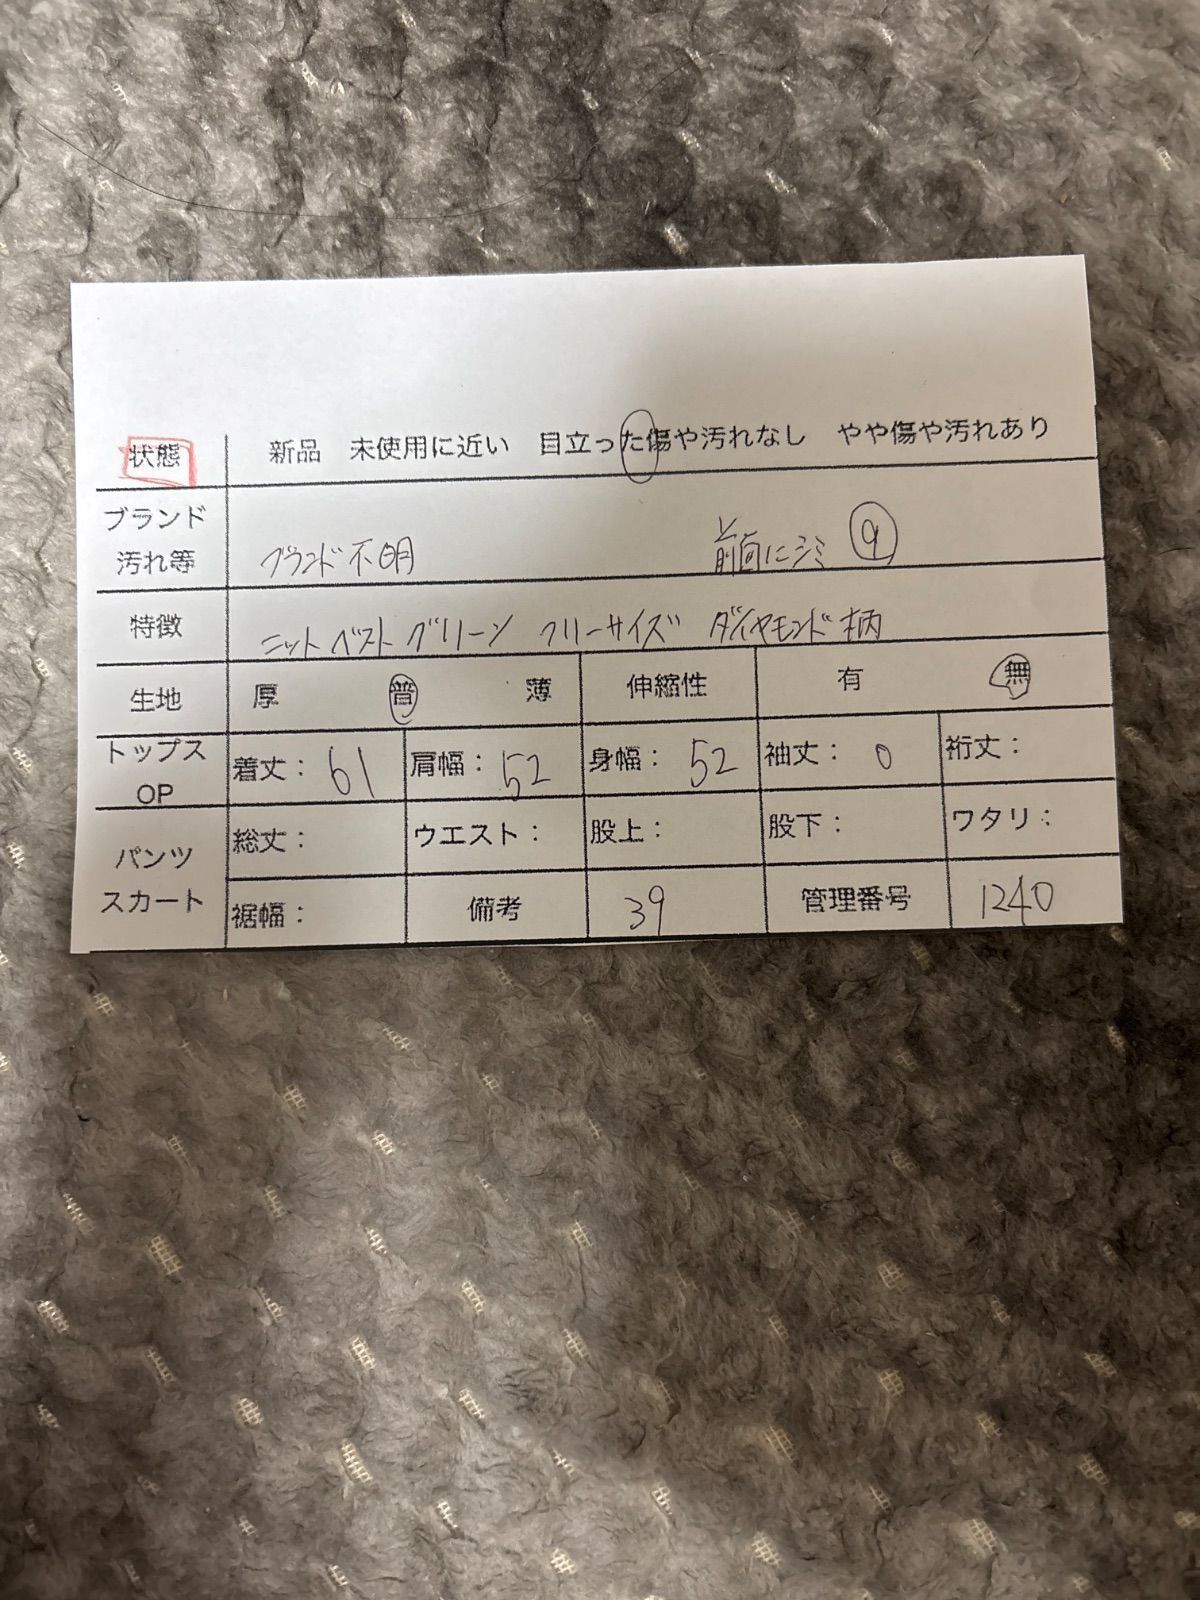 状態 新品 未使用に近い 目立った傷や汚れなし やや傷や汚れあり
ブランド
汚れ等 ブランド不明 前面にシミ 9
特徴 ニット ベスト グリーン フリーサイズ ダイヤモンド柄
生地 厚 普 薄 伸縮性 有 無
トップス
OP 着丈： 61 肩幅： 52 身幅： 52 袖丈： 0 裄丈：
パンツ
スカート 総丈： ウエスト： 股上： 股下： ワタリ：
裾幅： 備考 39 管理番号 1240